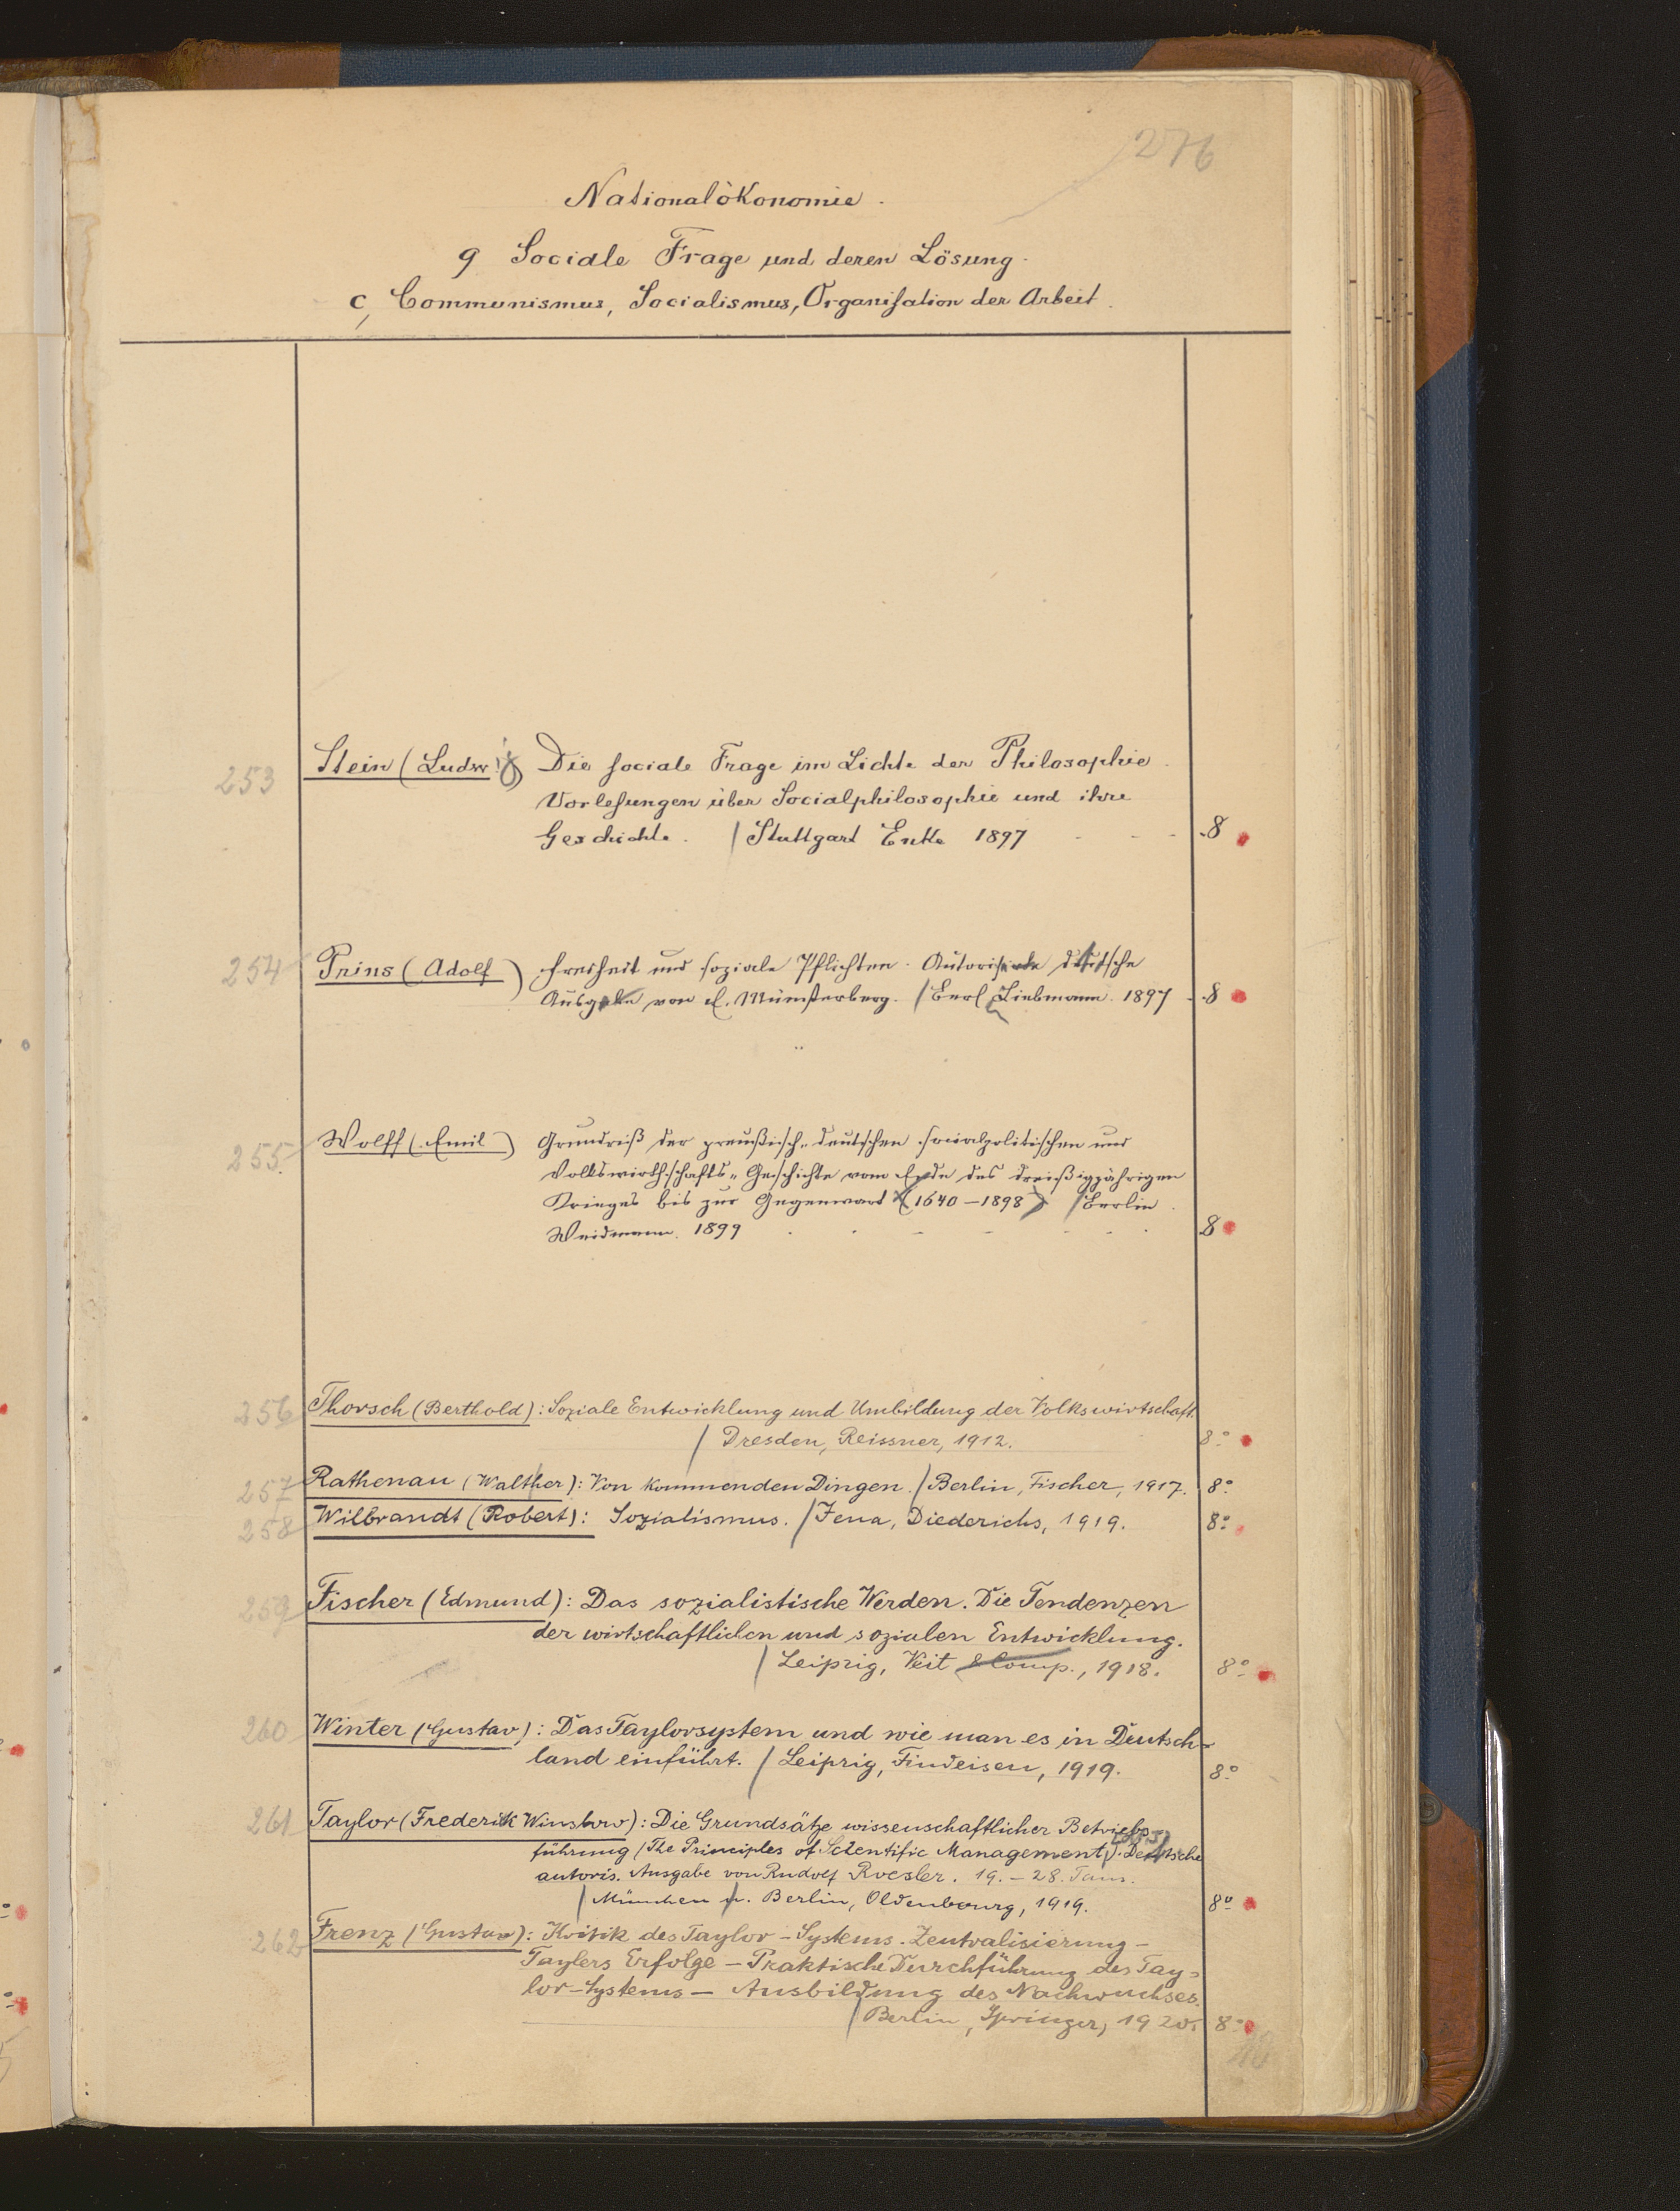 276
Nationalökonomie.
9 Sociale Frage und deren Lösung.
c, Communismus, Socialismus, Organisation der Arbeit.
253 Stein (Ludwig) Die sociale Frage im Lichte der Philosophie.
Vorlesungen über Socialphilosophie und ihre
Geschichte. / Stuttgart Enke 1897 - - - 8
254 Prins (Adolf) Freiheit und soziale Pflichten. Autorisierte deutsche
Ausgabe von E. Münsterberg. / Berl Liebmann. 1897 - 8
255. Wolff (Emil) Grundriß der preußisch-deutschen socialpolitischen und
Volkswirthschafts-Geschichte vom Ende des dreißigjährigen
Krieges bis zur Gegenwart (1640-1898) / Berlin.
Weidmann. 1899 8
256 Thorsch (Berthold): Soziale Entwicklung und Umbildung der Volkswirtschaft.
/ Dresden, Reissner, 1912. 8°
257 Rathenau (Walther): Von kommenden Dingen. / Berlin, Fischer, 1917. 8°
258 Wilbrandt (Robert): Sozialismus. / Jena, Diederichs, 1919. 8°
259 Fischer (Edmund): Das sozialistische Werden. Die Tendenzen
der wirtschaftlichen und sozialen Entwicklung.
/ Leipzig, Veit & Comp., 1918. 8°
260 Winter (Gustav): Das Taylorsystem und wie man es in Deutsch-
land einführt. / Leipzig, Findeisen, 1919. 8°
261 Taylor (Frederik Winslow): Die Grundsätze wissenschaftlicher Betriebs-
führung (The Principles of Scientific Management). Deutsche
autoris. Ausgabe von Rudolf Roesler. 19.-28. Taus.
/ München u. Berlin, Oldenbourg, 1919. 8°
262 Frenz (Gustav): Kritik des Taylor-Systems. Zentralisierung -
Taylers Erfolge - Praktische Durchführung des Tay-
lor-Systems - Ausbildung des Nachwuchses.
/ Berlin, Springer, 1920. 8°